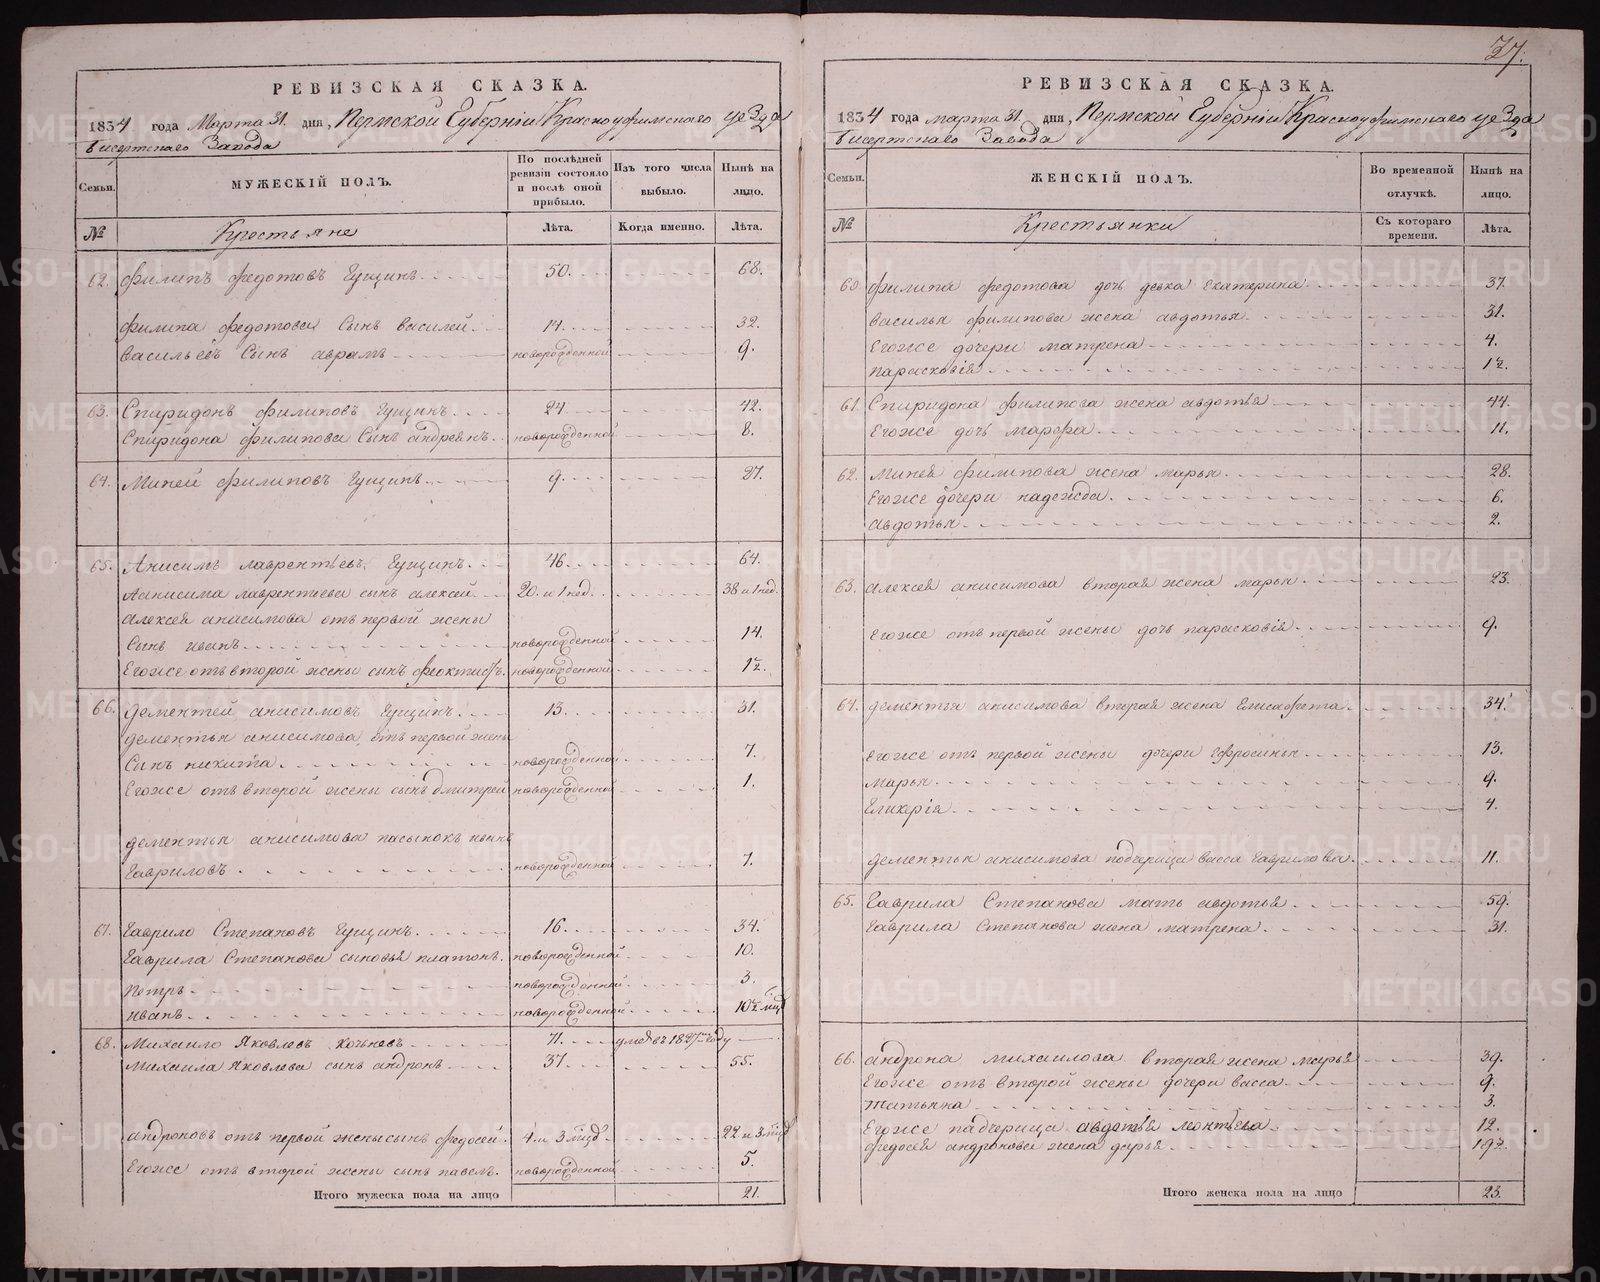 РЕВИЗСКАЯ СКАЗКА.
1834 года Марта 31. дня, Пермской Губерніи Красноуфимскаго уезда
Бисертскаго Завода
Семьи.
МУЖЕСКІЙ ПОЛЪ.
По послѣдней ревизіи состояло и послѣ оной прибыло.
Изъ того числа выбыло.
Нынѣ на лицо.
№
Крестьяне
Лѣта.
Когда именно.
Лѣта.
62. Филипъ Федотовъ Гущинъ 50. 68.
Филипа Федотова Сынъ Василей 14. 32.
Васильевъ Сынъ Аврамъ новорожденной 9.
63. Спиридонъ Филиповъ Гущинъ. 24. 42.
Спиридона Филипова Сынъ Андреянъ новорожденной 8.
64. Миней Филиповъ Гущинъ 9. 27.
65. Анисимъ Лаврентьевъ Гущинъ 46. 64.
Анисима Лаврентьева сынъ Алексей 20. и 1 нед. 38 и 1 нед.
Алексея Анисимова отъ первой жены
Сынъ Иванъ новорожденной 14.
Егоже отъ второй жены сынъ Феоктистъ. новорожденной 1½.
66. Дементей Анисимовъ Гущинъ. 13. 31.
Дементья Анисимова, отъ первой жены
Сынъ Никита новорожденной 7.
Егоже отъ второй жены сынъ Дмитрей новорожденной 1.
Дементья Анисимова пасынокъ Иванъ
Гавриловъ новорожденной 7.
67. Гаврило Степановъ Гущинъ 16. 34.
Гаврила Степанова сыновья Платонъ. новорожденной 10.
Петръ новорожденной 3.
Иванъ новорожденной
68. Михайло Яковлевъ 71. 1827 году
Михаила Яковлева сынъ Андронъ 37. 55.
Андроновъ отъ первой жены сынъ Федосей. 4. и 3 22 и 3
Егоже отъ второй жены сынъ Павелъ. новорожденной 5.
Итого мужеска пола на лицо 21.
37.
РЕВИЗСКАЯ СКАЗКА.
1834 года Марта 31. дня, Пермской Губерніи Красноуфимскаго уезда
Бисертскаго Завода
Семьи.
ЖЕНСКІЙ ПОЛЪ.
Во временной отлучкѣ.
Нынѣ на лицо.
№
Крестьянки
Съ котораго времени.
Лѣта.
60. Филипа Федотова дочь девка Екатерина 37.
Василья Филипова жена Авдотья 31.
Егоже дочери Матрена 4.
Парасковія 1½.
61. Спиридона Филипова жена Авдотья 44.
Егоже дочь Марфа. 11.
62. Минея Филипова жена Марья. 28.
Егоже дочери Надежда. 6.
Авдотья 2.
63. Алексея Анисимова вторая жена Марья 23.
Егоже отъ первой жены дочь Парасковія 9.
64. Дементья Анисимова вторая жена Елисафета 34.
Егоже отъ первой жены дочери Ефросинья 13.
Марья 9.
Гликерія 4.
Дементья Анисимова подчерица Васса Гаврилова. 11.
65. Гаврила Степанова мать Авдотья 59.
Гаврила Степанова жена Матрена. 31.
66. Андрона Михаилова вторая жена Марья 39.
Егоже отъ второй жены дочери Васса 9.
Татьяна 3.
Егоже падчерица Авдотья Леонтьева 12.
Федосея Андронова жена Дарья 19½.
Итого женска пола на лицо 23.
METRIKI.GASO-URAL.RU